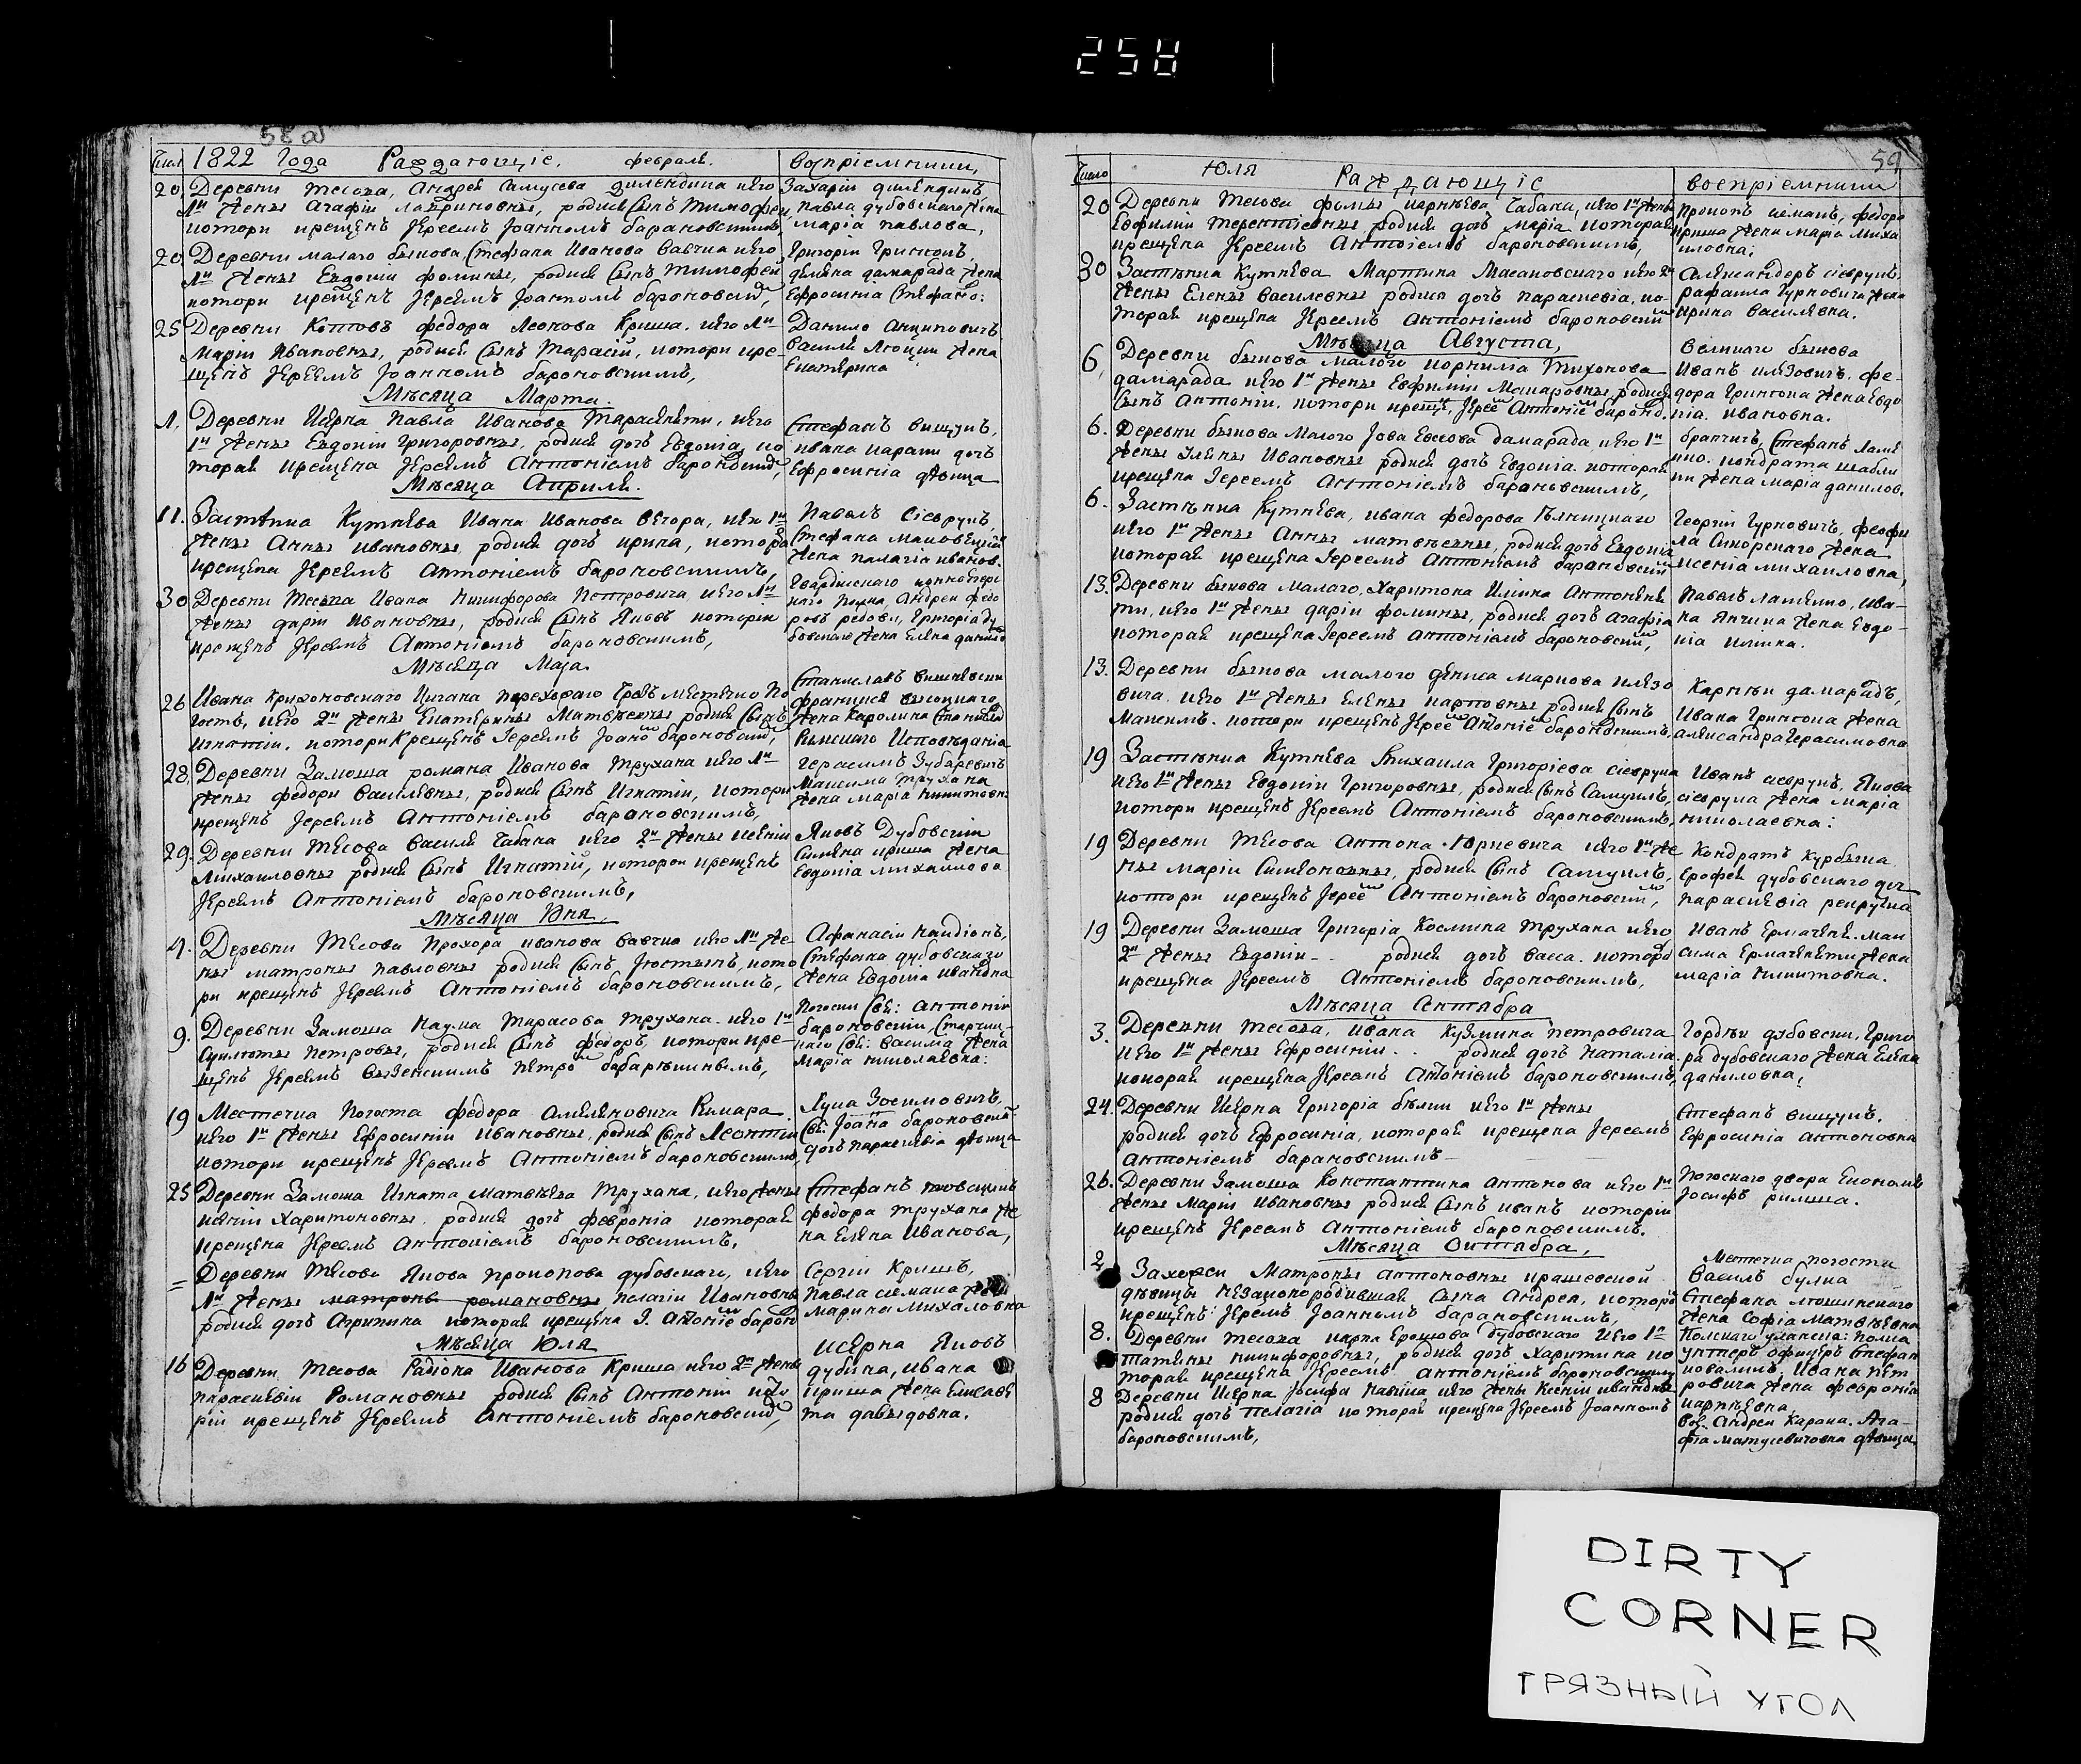 258
58 об
Число 1822 Года Раждающіе. февраля. воспріемники,
20 Деревни Тесова, Андрея Самусева дилендика иего
1й жены Агафіи лавриновны, родися сынъ тимофеи,
котори крещенъ Іереемъ Іоанномъ барановскимъ,
Захарій дилендикъ,
павла дубовскаго жена
марія павлова,
20 Деревни малаго быкова Стефана Иванова вавчка иего
1й жены Евдокіи фомины, родися сынъ тимофей
котори крещенъ Іереемъ Іоанномъ бароновским,
Григорій Гринкоцъ,
демяна дамарада жена
Ефросинія Стефано:
25 Деревни Котовъ федора Леонова Криша. иего 1й
Маріи Ивановны, родися сынъ тарасій, котори кре-
щенъ Іереемъ Іоанномъ бароновскимъ,
Данило Анциповичъ
василя Ягоции жена
Екатерина
Мѣсяца Марта.
1. Деревни Искрка Павла Иванова тарасевити, иего
1й жены Евдокіи Григоровны, родися дочъ Евдокія, ко
торая крещена Іереемъ Антоніемъ бароновским,
Стефанъ вищупъ,
ивана царика дочъ
Ефросинія дѣвица
Мѣсяца Апрѣля.
11. Застѣнка Кутнева Ивана Иванова вегора, иего 1й
жены Анны ивановны, родися дочъ ирина, котора
крещена Іереемъ Антоніемъ бароновскимъ,
Павелъ Сіекрупъ,
Стефана макавецкаго
жена палагія иванов.
30 Деревни Тесова Ивана Никифорова Петровича, иего 1й
жены дарїи Ивановны, родися сынъ Яковъ которіи
крещенъ Іереемъ Антоніемъ бароновскимъ,
Гвардискаго конноегер
наго полка, Андреи федо
ровъ редови, Григорія Ду
бовскаго жена Елена данило
Мѣсяца Мая.
26 Ивана Крихоновскаго Цигана перехожаго чрезъ местечко По
гостъ, иего 2й жены Екатерины Матвѣевны родися сынъ
игнатіи. котори Крещенъ Іереемъ Іоано бароновским,
Станиславъ вишневски
францыся высоцкаго
жена Каролина Станисла
Римскаго Исповѣданія
28, Деревни Замоша романа Иванова трухана иего 1й
жены федоры василевны, родися сынъ Игнатіи, котори
крещенъ Іереемъ Антоніемъ барановскимъ,
герасимъ Зубаревичъ
Максима трухана
жена марія никитовны
29. Деревни Тесова василя Чабана иего 2й жены ксеніи
Михаиловны родися сынъ Игнатій, котори крещенъ
Іереемъ Антоніемъ бароновскимъ,
Яковъ Дубовскіи
Симона криша жена
Евдокія михаилова
Мѣсяца Юня.
4. Деревни Тесова прохора иванова вавчка иего 1й же-
ны матроны павловны родися сынъ Іюстынъ, кото
ри крещенъ Іереемъ Антоніемъ бароновскимъ,
Афанасіи кандіонъ,
Стефана дубовскаго
жена Евдокія ивановна
9. Деревни Замоша Наума тарасова трухана. иего 1й
Сцилюты петровы, родися сынъ федоръ, котори кре-
щенъ Іереемъ вызенскимъ петро бабарыкинымъ,
погоски Свя: антоніи
бароновскіи, Старчиц-
каго Свя: василия жена
Марія николаевна:
19 Местечка погоста федора Амиляновича Римара.
иего 1й жены Ефросиніи Ивановны, родися сынъ Леонтіи
котори крещенъ Іереемъ Антоніемъ бароновскимъ,
Лука Зосимовичъ,
свя: Іоана бароновскаго
дочъ параскевія дѣвица
25 Деревни Замоша Игната матвѣева трухана, иего жены
ксеніи харитоновны, родися дочъ февронія которая
крещена Іереемъ Антоніемъ бароновскимъ,
Стефанъ
федора трухана же
на Елена Иванова,
= Деревни Тесова Якова прокопова дубовскаго, иего
1й жены матроны романовны пелагіи Ивановны
родися дочъ Агрипина которая крещена І. Антоніе барон
Сергіи Кришъ,
павла семака жена
Марина Михаловна
Мѣсяца Юля
16 Деревни Тесова Радіона Иванова Криша иего 2й жены
параскевіи Романовны родися сынъ Антонїи кото
рїи крещенъ Іереемъ Антоніемъ бароновским,
искрка Яковъ
дубина, ивана
криша жена Елисаве
та давыдовна.
59
Число Юля Раждающіе воспріемники
20 Деревни Тесова фомы карнѣева Чабана, иего 1й жены
Евфиміи терентіевны, родися дочъ марія которая
крещена Іереемъ Антоніемъ бароновскимъ,
Прокопъ семакъ, федора
криша жена марія миха
иловна:
30 Застѣнка Кутнева Мартина Масановскаго иего 2й
жены Елены василевны родися дочъ параскевія, ко-
торая крещена Іереемъ Антоніемъ бароновским
Александеръ сіекрупъ,
рафаила Гурновича жена
ирина василевна.
Мѣсяца Августа,
6, Деревни быкова малого корнила тихонова
дамарада иего 1й жены Евфиміи Макаровны, родися
сынъ Антоніи. котори креще, Іерее Антоніе барон.
великаго быкова
иванъ илязовичъ, фе-
дора Гринкоца жена Евдо
кія. ивановна.
6. Деревни быкова малого Іова Евсеова дамарада, иего 1й
жены Улены Ивановны родися дочъ Евдокія. которая
крещена Іереемъ Антоніемъ бароновскимъ,
братчикъ, Стефанъ лаше
ко. кондрата шабли
ки жена марія данилов.
6. Застѣнка Кутнева, ивана федорова Гѣлницкаго
иего 1й жены Анны матвѣевны, родися дочъ Евдокія
которая крещена Іереемъ Антоніемъ барановским
Георгіи Гурновичъ, феофи
ла Сикорскаго жена
ксенія михаиловна,
13. Деревни быкова малого, Харитона илика Антонени
ти, иего 1й жены дарїи фомины, родися дочъ агафія
которая крещена Іереемъ Антоніемъ бароновским,
Павелъ лашкико, ива-
на янчика жена Евдо-
кія илика.
13. Деревни быкова малого дениса маркова илязо
вича иего 1й жены Елены карповны родися сынъ
Максимъ. котори крещенъ Іерее Антоніе барановскимъ,
Карнѣи дамарадъ,
Ивана Гринкоца жена
александра герасимовна
19 Застѣнка Кутнева Михаила Григоріева сіекрупа
иего 1й жены Евдокіи Григоровны, родися сынъ Самуилъ,
котори крещенъ Іереемъ Антоніемъ бароновскимъ,
Иванъ сіекрупъ, Якова
сіекрупа жена марія
николаевна:
19 Деревни Тесова Антона Юрцевича иего 1й же
ны маріи Симоновны, родися сынъ Самуилъ,
котори крещенъ Іерее Антоніемъ бароновским,
Кондратъ Курбыка
Ерофея дубовскаго доч
параскевія рекрутка
19 Деревни Замоша Григорія Космина трухана иего
2й жены Евдокіи - - родися дочъ васса. которо
крещена Іереемъ Антоніемъ бароновскимъ,
Иванъ Ермачени. мак
сима Ермаченити жена
марія никитовна.
Мѣсяца Сентября
3. Деревни тесова, ивана кузмина петровича
иего 1й жены Ефросиніи . . родися дочъ наталія
которая крещена Іереемъ Антоніемъ бароновскимъ,
Гордѣи дубовски, Григо
ра дубовскаго жена Елена
даниловна,
24. Деревни Искрка Григорія бѣлии иего 1й жены
родися дочъ Ефросинія, которая крещена Іереемъ
антоніемъ барановскимъ
Стефанъ вищупъ.
Ефросинія антоновна
26. Деревни Замоша Константина антонова иего 1й
жены Маріи Ивановны родися сынъ иванъ которїи
крещенъ Іереемъ Антоніемъ бароновскимъ.
Погоскаго двора Економъ
Іосифъ римша.
Мѣсяца Октября,
2 Захорси Матроны антоновны крашевской
дѣвицы незаконородившая сына Андрея, которо
крещенъ: Іереемъ Іоанномъ барановскимъ,
Местечка погоста
василъ булка
Стефана мошинскаго
жена Софія матвѣевна
8. Деревни тесова карпа Ерошова дубовскаго иего 1й
татяны никифоровны, родися дочъ харитина ко
торая крещена Іереемъ антоніемъ бароновским
Полскаго уланска: полка
унтеръ офицеръ Стефан
коваликъ, ивана пет
ровича жена февронія
карпѣевна
8 Деревни Искрка Іосифа навица иего жены Ксеніи ивановны
родися дочъ пелагія которая крещена Іереемъ Іоанномъ
бароновскимъ,
Вос. Андреи Карака. Ага-
фїа матусевичовна дѣвица
DIRTY
CORNER
ГРЯЗНЫЙ УГОЛ